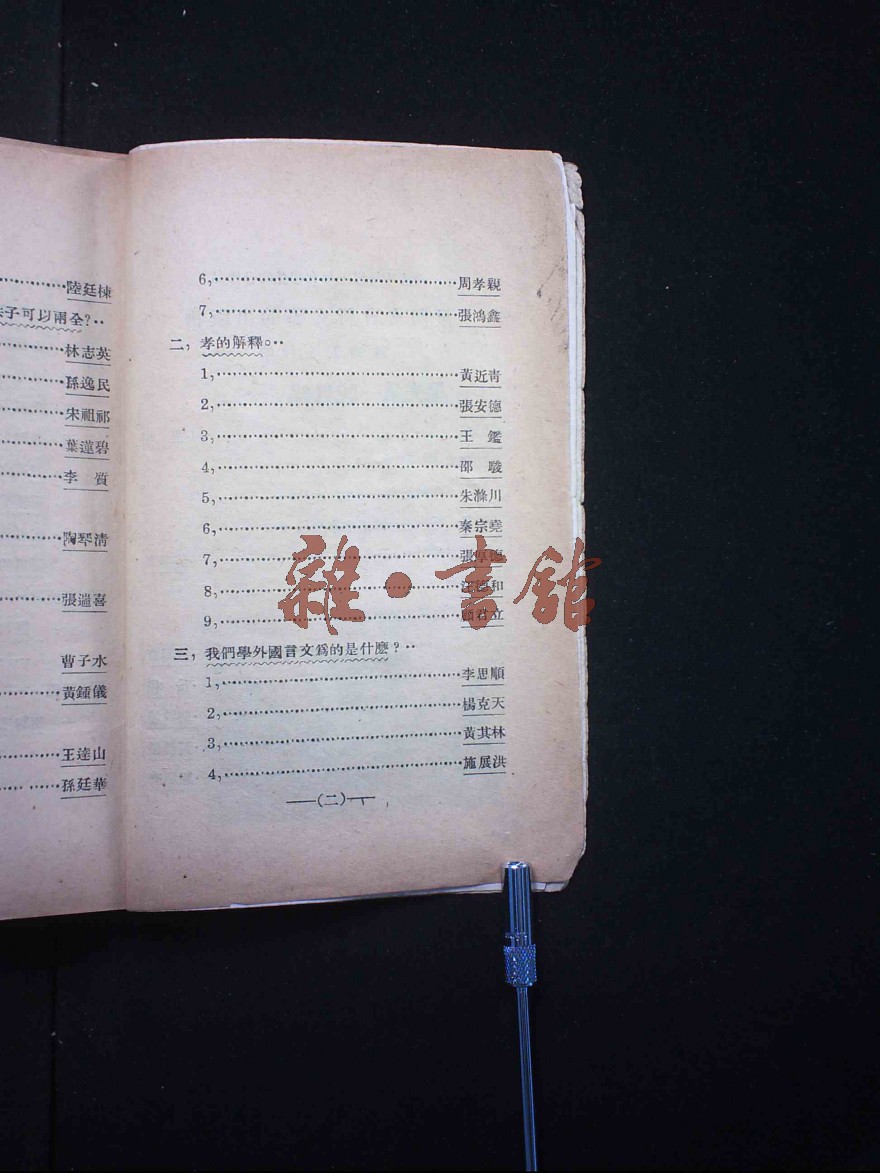 陸廷棟
子可以兩全?··
林志英
孫逸民
宋祖祁
葉蓮碧
李　質
陶琴清
張遄喜
曹子水
黃鍾儀
王達山
孫廷華
6,········周孝親
7,········張鴻鑫
二，孝的解釋。··
1,········黃近青
2,········張安德
3,········王　鑑
4,········邵　駿
5,········朱滌川
6,········秦宗堯
7,········張厚德
8,········德和
9,········顧君立
三，我們學外國言文爲的是什麽?··
1,········李思順
2,········楊克天
3,········黃其林
4,········施展洪
—(二)—
雜·書館